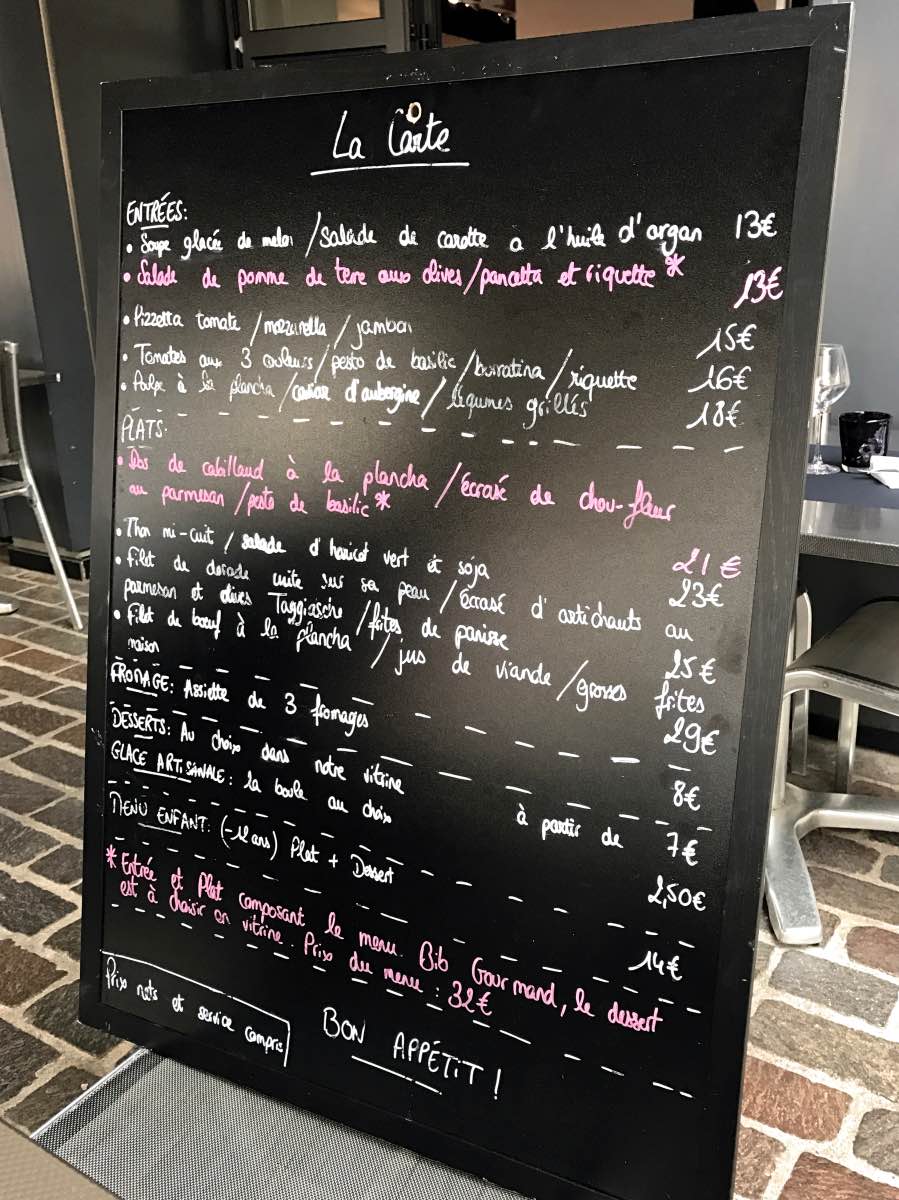 La Carte
ENTRÉES:
• Soupe glacée de melon / Salade de carotte a l'huile d'argan 13€
• Salade de pomme de terre aux olives / pancetta et riquette * 13€
• Pizzetta tomate / mozzarella / jambon 15€
• Tomates aux 3 couleurs / pesto de basilic / burratina / riquette 16€
• Poulpe à la plancha / caviar d'aubergine / légumes grillés 18€
PLATS:
• Dos de cabillaud à la plancha / écrasé de chou-fleur
au parmesan / pesto de basilic * 21€
• Thon mi-cuit / salade d'haricot vert et soja 23€
• Filet de dorade cuite sur sa peau / écrasé d'artichauts au
parmesan et olives Taggiasche / frites de panisse 25€
• Filet de bœuf à la plancha / jus de viande / grosses frites
maison 29€
FROMAGE: Assiette de 3 fromages 8€
DESSERTS: Au choix dans notre vitrine à partir de 7€
GLACE ARTISANALE: la boule au choix 2,50€
MENU ENFANT: (-12 ans) Plat + Dessert 14€
* Entrée et Plat composant le menu Bib Gourmand, le dessert
est à choisir en vitrine. Prix du menu : 32€
Prix nets et service compris
BON APPÉTIT !